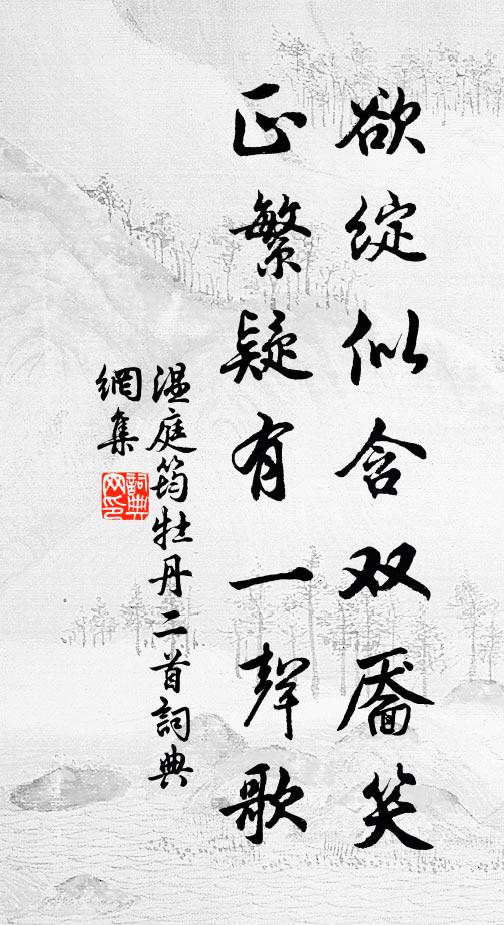 欲绽似含双靥笑
正繁疑有一聲歌
温庭筠牡丹二首詞典
網集
詞典
网印